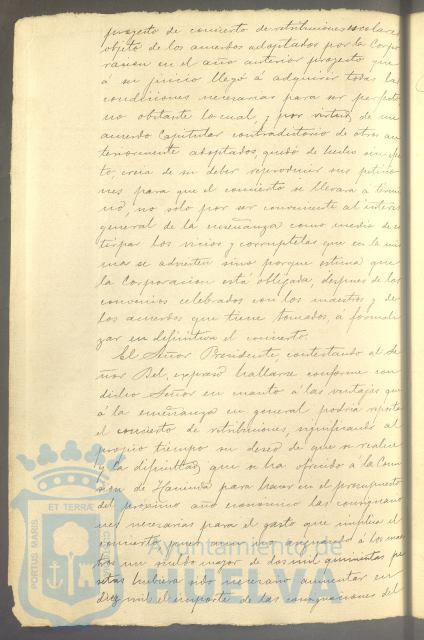 proyecto de concierto de retribuciones escolares
objeto de los acuerdos adoptados por la Corpo
racion en el año anterior proyecto que
á su juicio llegó á adquirir todas las
condiciones necesarias para ser perfecto
no obstante lo cual, y por virtud de un
acuerdo Capitular contradictorio de otros an
teriormente adoptados, quedó de hecho sin efec
to, creia de su deber reproducir sus peticio
nes para que el concierto se llevara á térmi
no, no solo por ser conveniente al interés
general de la enseñanza como medio de es
tirpar los vicios y corruptelas que en la mis
ma se advierten sino porque estima que
la Corporacion está obligada, despues de los
convenios celebrados con los maestros y de
los acuerdos que tiene tomados, á formali
zar en definitiva el concierto.
El Señor Presidente, contestando al Se
ñor Bel, expresó hallarse conforme con
dicho Señor en cuanto á las ventajas que
á la enseñanza en general podria reportar
el concierto de retribuciones, significando al
propio tiempo su deseo de que se realice
y la dificultad que se ha ofrecido á la Comi
sion de Hacienda para hacer en el presupuesto
del próximo año economico las consignacio
nes necesarias para el gasto que implica el
concierto, pues aun no asignando á los maes
tros un sueldo mayor de dos mil quinientas pe
setas hubiera sido necesario aumentar en
diez mil el importe de las consignaciones del
PORTUS MARIS ET TERRÆ CUSTODIA
Ayuntamiento de
HUELVA